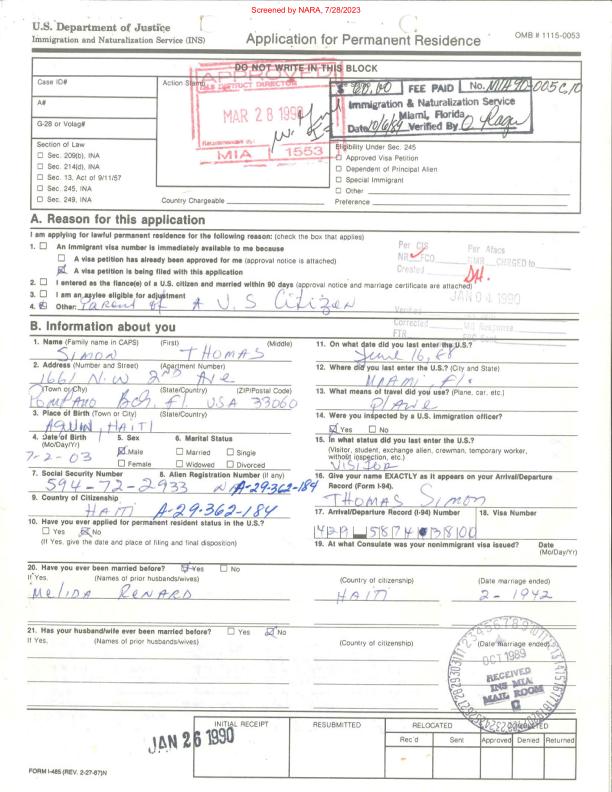 Screened by NARA, 7/28/2023
U.S. Department of Justice
Immigration and Naturalization Service (INS)
Application for Permanent Residence
OMB # 1115-0053
DO NOT WRITE IN THIS BLOCK
Case ID#
Action Stamp
APPROVED
INS DISTRICT DIRECTOR
MAR 28 1990
MIA 1553
FEE PAID No.
Immigration & Naturalization Service
Miami, Florida
Date 10/6/89 Verified By
A#
G-28 or Volag#
Section of Law
☐ Sec. 209(b), INA
☐ Sec. 214(d), INA
☐ Sec. 13, Act of 9/11/57
☐ Sec. 245, INA
☐ Sec. 249, INA
Country Chargeable
Eligibility Under Sec. 245
☐ Approved Visa Petition
☐ Dependent of Principal Alien
☐ Special Immigrant
☐ Other
Preference
A. Reason for this application
I am applying for lawful permanent residence for the following reason: (check the box that applies)
1. ☐ An immigrant visa number is immediately available to me because
☐ A visa petition has already been approved for me (approval notice is attached)
☑ A visa petition is being filed with this application
2. ☐ I entered as the fiance(e) of a U.S. citizen and married within 90 days (approval notice and marriage certificate are attached)
3. ☐ I am an asylee eligible for adjustment
4. ☑ Other: Parent of A U S Citizen
Per CIS
NR FCO
Created
Per Afacs
CHARGED to
DH.
JAN 04 1990
Verified
Corrected
FTR
B. Information about you
1. Name (Family name in CAPS) (First) (Middle)
SIMON THOMAS
2. Address (Number and Street) (Apartment Number)
1661 N.W 2ND Ave
(Town or City) (State/Country) (ZIP/Postal Code)
Pompano Bch. Fl USA 33060
3. Place of Birth (Town or City) (State/Country)
AQUIN, HAITI
4. Date of Birth
(Mo/Day/Yr)
7-2-03
5. Sex
☑ Male
☐ Female
6. Marital Status
☐ Married ☐ Single
☐ Widowed ☐ Divorced
7. Social Security Number
594-72-2933
8. Alien Registration Number (If any)
A-29-362-184
9. Country of Citizenship
HAITI A-29-362-184
10. Have you ever applied for permanent resident status in the U.S.?
☐ Yes ☑ No
(If Yes, give the date and place of filing and final disposition)
11. On what date did you last enter the U.S.?
June 16, 88
12. Where did you last enter the U.S.? (City and State)
MIAMI, Fl.
13. What means of travel did you use? (Plane, car, etc.)
Plane
14. Were you inspected by a U.S. immigration officer?
☑ Yes ☐ No
15. In what status did you last enter the U.S.?
(Visitor, student, exchange alien, crewman, temporary worker, without inspection, etc.)
VISITOR
16. Give your name EXACTLY as it appears on your Arrival/Departure
Record (Form I-94).
THOMAS SIMON
17. Arrival/Departure Record (I-94) Number
18. Visa Number
19. At what Consulate was your nonimmigrant visa issued? Date
(Mo/Day/Yr)
20. Have you ever been married before? ☑ Yes ☐ No
If Yes, (Names of prior husbands/wives) (Country of citizenship) (Date marriage ended)
Melida RENARD HAITI 2-1942
21. Has your husband/wife ever been married before? ☐ Yes ☑ No
If Yes, (Names of prior husbands/wives) (Country of citizenship) (Date marriage ended)
OCT 1989
RECEIVED
INS MIA
MAIL ROOM
C
INITIAL RECEIPT
JAN 26 1990
RESUBMITTED
RELOCATED
Rec'd Sent
Approved Denied Returned
FORM I-485 (REV. 2-27-87)N